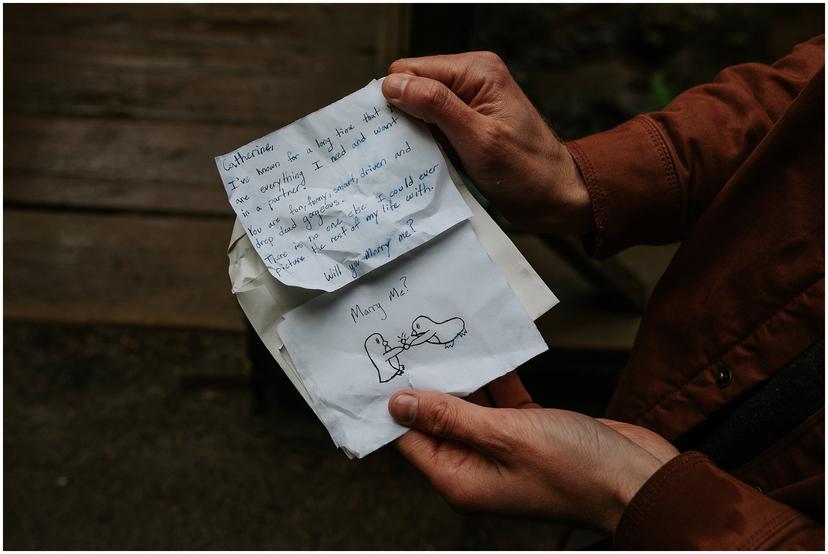 Catherine,
I've known for a long time that
are everything I need and want
in a partner.
You are fun, funny, smart, driven, and
drop dead gorgeous.
There is no one else I could ever
picture the rest of my life with.
Will you Marry me?
Marry Me?